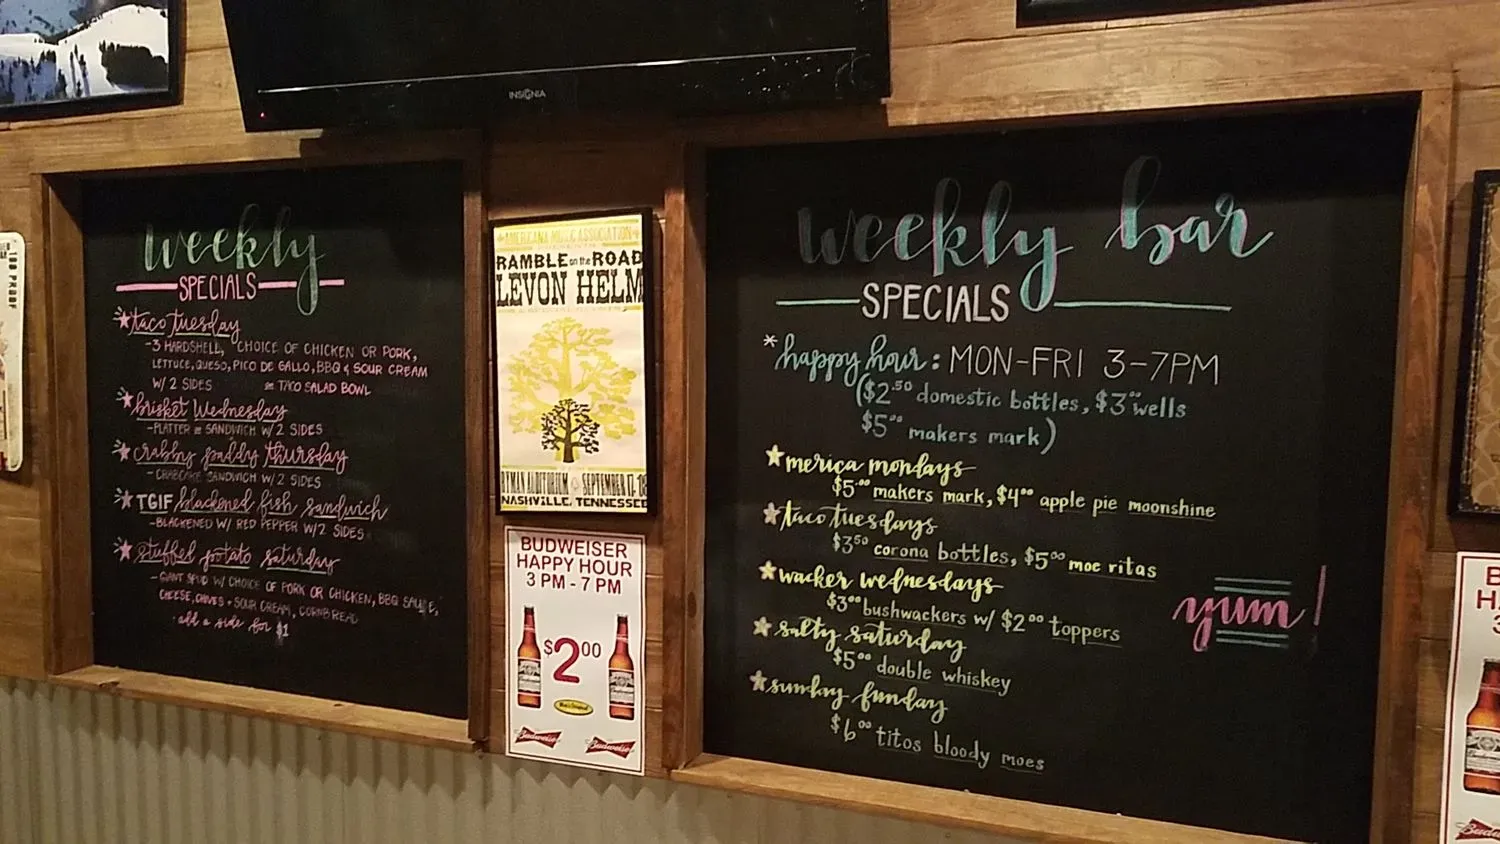 INSIGNIA
100 PROOF
weekly
SPECIALS
taco tuesday
-3 HARDSHELL, CHOICE OF CHICKEN OR PORK,
LETTUCE, QUESO, PICO DE GALLO, BBQ & SOUR CREAM
W/ 2 SIDES or TACO SALAD BOWL
brisket Wednesday
-PLATTER or SANDWICH W/ 2 SIDES
crabby paddy thursday
-CRABCAKE SANDWICH W/ 2 SIDES
TGIF blackened fish sandwich
-BLACKENED W/ RED PEPPER W/ 2 SIDES
stuffed potato saturday
-GIANT SPUD W/ CHOICE OF PORK OR CHICKEN, BBQ SAUCE,
CHEESE, CHIVES + SOUR CREAM, CORNBREAD
add a side for $1
AMERICANA MUSIC ASSOCIATION
RAMBLE on the ROAD
LEVON HELM
RYMAN AUDITORIUM SEPTEMBER 17, '08
NASHVILLE, TENNESSEE
BUDWEISER
HAPPY HOUR
3 PM - 7 PM
$2.00
Budweiser
Budweiser
weekly bar
SPECIALS
*happy hour: MON-FRI 3-7PM
($2.50 domestic bottles, $3.00 wells
$5.00 makers mark)
merica mondays
$5.00 makers mark, $4.00 apple pie moonshine
taco tuesdays
$3.50 corona bottles, $5.00 moe ritas
wacker wednesdays
$3.00 bushwackers w/ $2.00 toppers
salty saturday
$5.00 double whiskey
sunday funday
$6.00 titos bloody moes
yum!